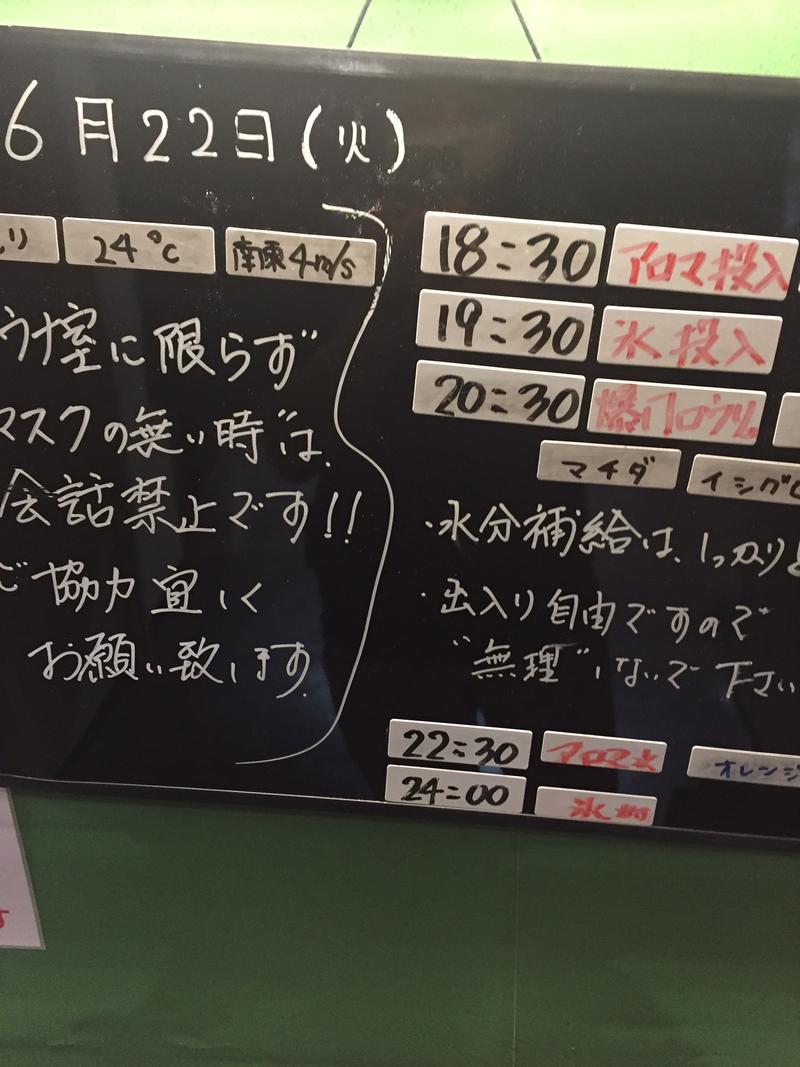 6月22日(火)
り 24℃ 南東4m/s
ウナ室に限らず
マスクの無い時"は、
会話禁止です!!
ご協力宜しく
お願い致します。
18:30 アロマ投入
19:30 氷投入
20:30 爆ロウリュ
マチダ イシグロ
・水分補給は、しっかりと
・出入り自由ですので
"無理"しないで下さい
22:30 アロマ水 オレンジ
24:00 氷